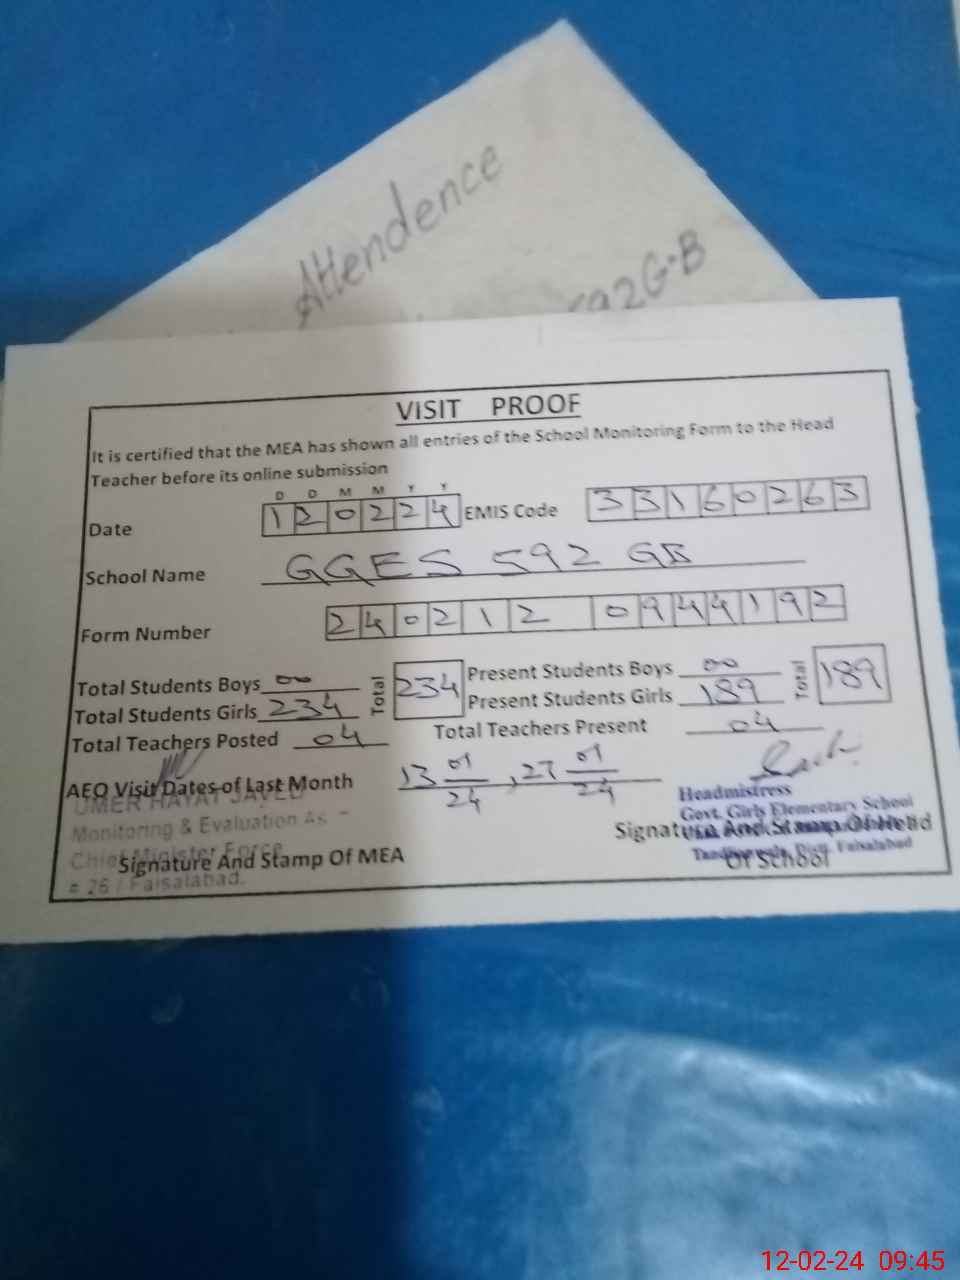 Attendence
592G-B
VISIT PROOF
It is certified that the MEA has shown all entries of the School Monitoring Form to the Head
Teacher before its online submission
D D M M Y Y
Date 120224 EMIS Code 33160263
School Name GGES 592 GB
Form Number 240212 0944192
Total Students Boys 00 Total 234 Present Students Boys 00 Total 189
Total Students Girls 234 Present Students Girls 189
Total Teachers Posted 04 Total Teachers Present 04
AEO Visit Dates of Last Month 13 01/24, 27 01/24
UMER HAYAT JAVED
Monitoring & Evaluation As
Chief Minister Force
# 26 / Faisalabad.
Signature And Stamp Of MEA
Headmistress
Govt. Girls Elementary School
Tandlianwala, Distt. Faisalabad
Signature And Stamp Of Head
Of School
12-02-24 09:45